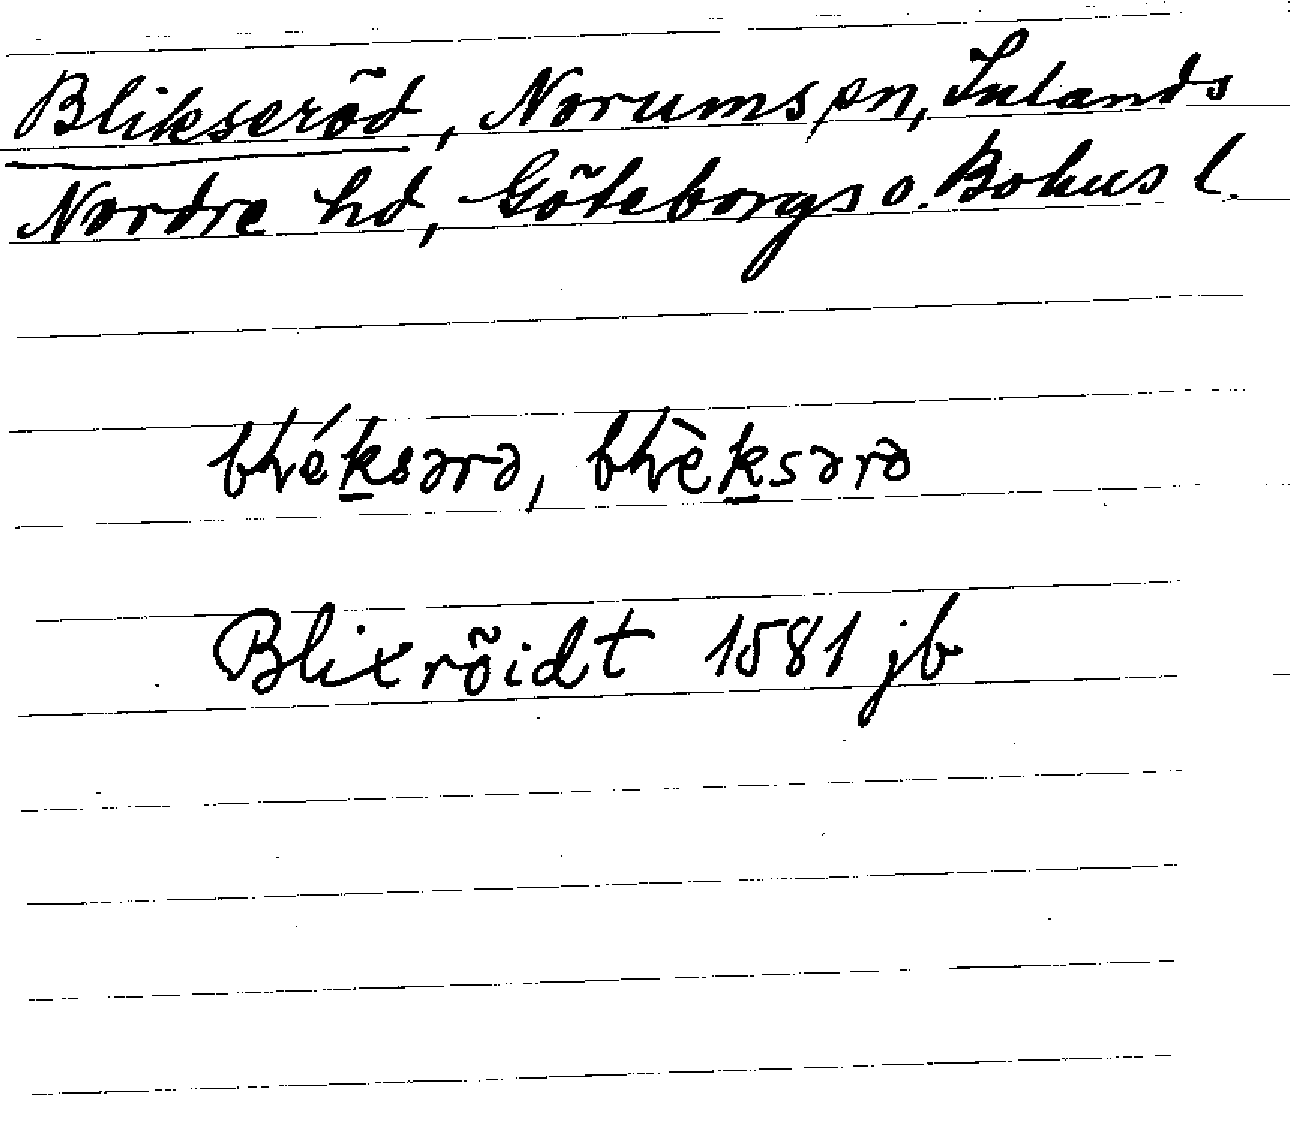 Blikseröd, Norums sn, Inlands
Nordre hd, Göteborgs o. Bohus l.
Blixröidt 1581 jb